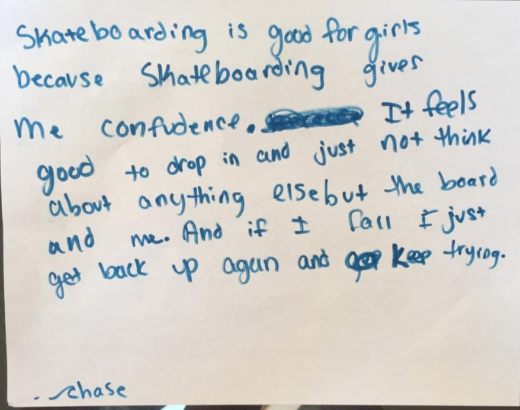 Skateboarding is good for girls
because Skateboarding gives
me confudence. It feels
good to drop in and just not think
about anything else but the board
and me. And if I fall I just
get back up again and keep trying.
chase